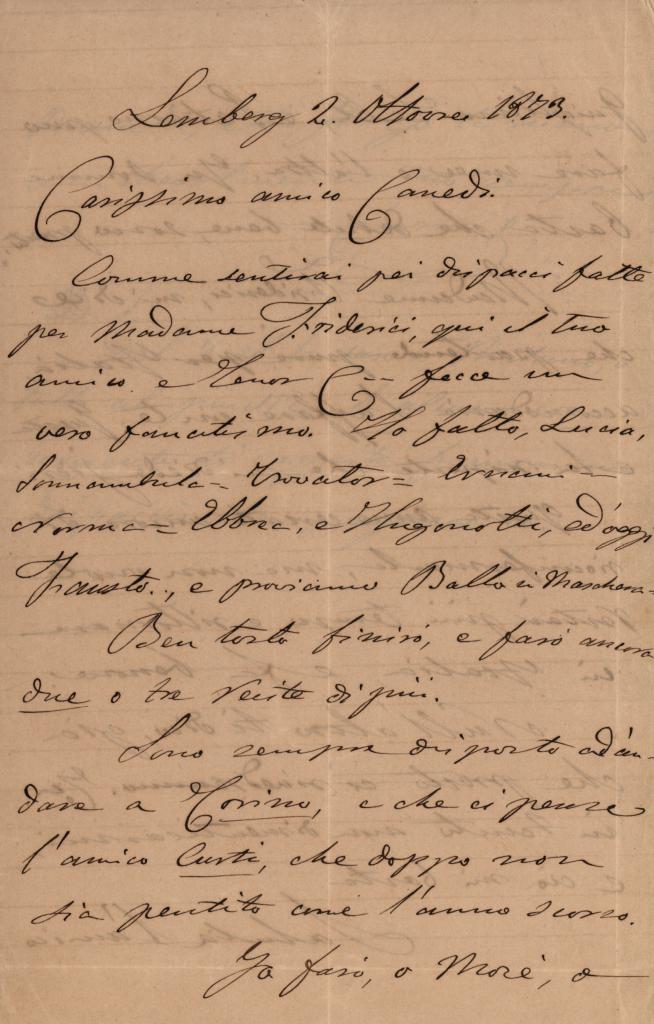 Lemberg 2. Ottovre 1873.
Carissimo amico Canedi.
Comme sentirai pei dispacci fatte
per Madame Friderici, qui il tuo
amico e Tenor C-- fecce un
vero fanatismo. Ho fatto, Lucia,
Sonnambula = Trovator = Ernani =
Norma = Ebbrea, e Hugonotti, ed'oggi
Frausto.., e proviamo Ballo in Maschera =
Ben tosto finiró, e faró ancora
due o tre recite di piú.
Sono sempre disposto ad'an-
dare a Torino, e che ci pense
l'amico Curti, che doppo non
sia pentito come l'anno scorso.
Jo faró, o Moré, o